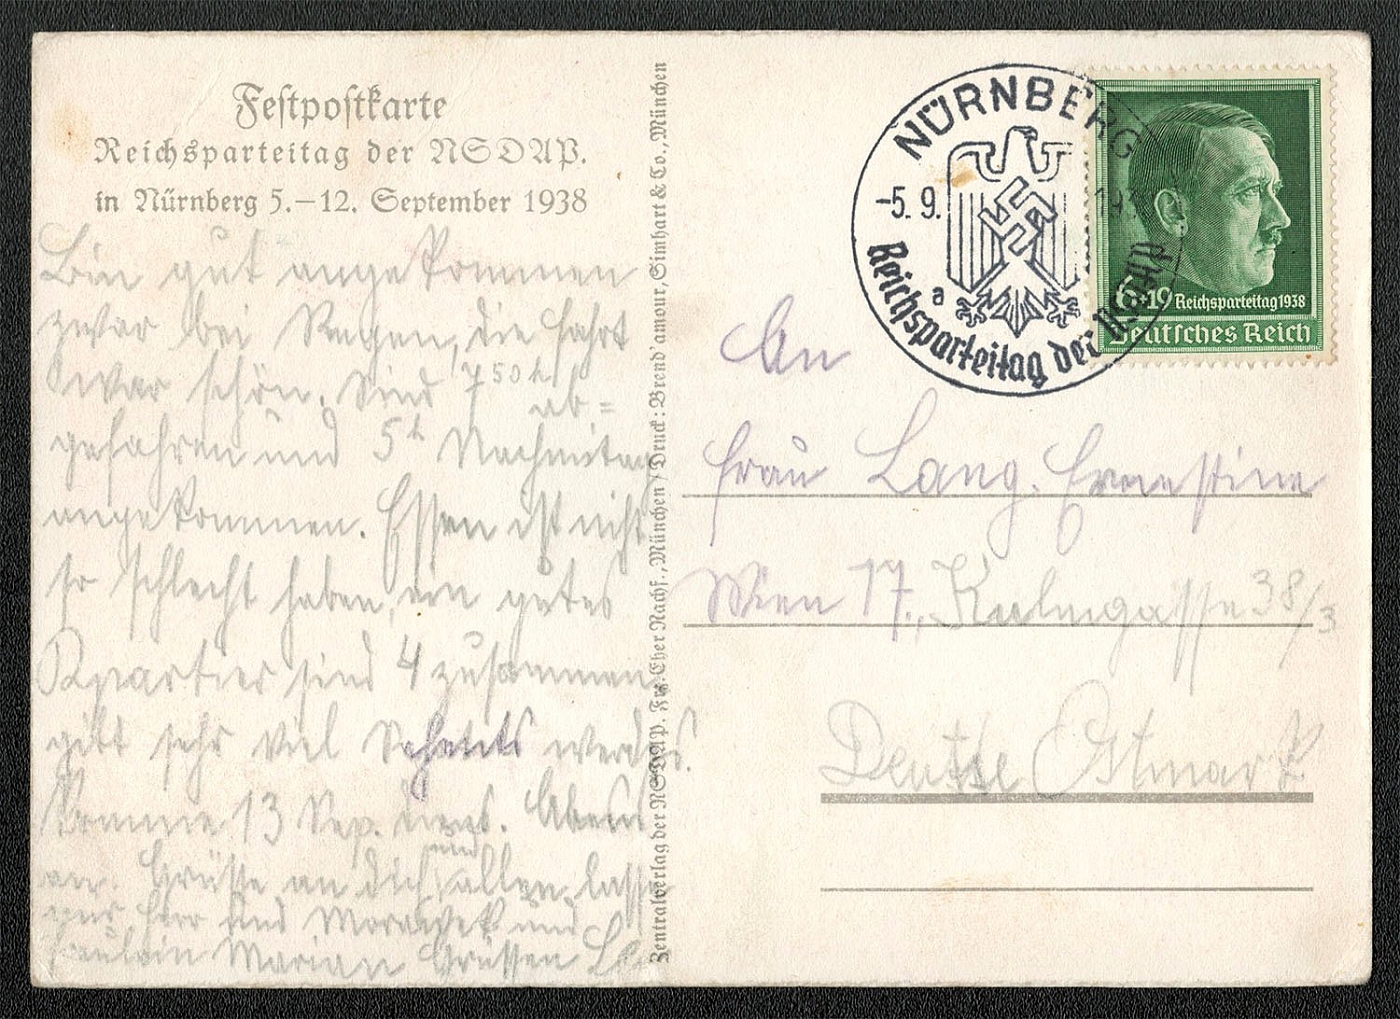 Festpostkarte
Reichsparteitag der NSDAP.
in Nürnberg 5.–12. September 1938
Bin gut angekommen
zwar bei Regen, die Fahrt
war schön. Sind 7 50 h ab=
gefahren und 5 h Nachmitag
angekommen. Essen ist nicht
so schlecht haben ein gutes
Quartier sind 4 zusammen
gibt sehr viel
komme 13 Sep.
an. Grüsse an dich und allen lasse
Herr und und
Fräulein Marian Grüssen
Zentralverlag der NSDAP. Frz. Eher Nachf., München / Druck: Brend'amour, Simhart & Co., München
NÜRNBERG
-5. 9. 193
a
Reichsparteitag der NSDAP
6+19 Reichsparteitag 1938
Deutsches Reich
An
Frau Lang. Ernestine
Wien 17., Kulmgasse 38/3
Deutsche Ostmark